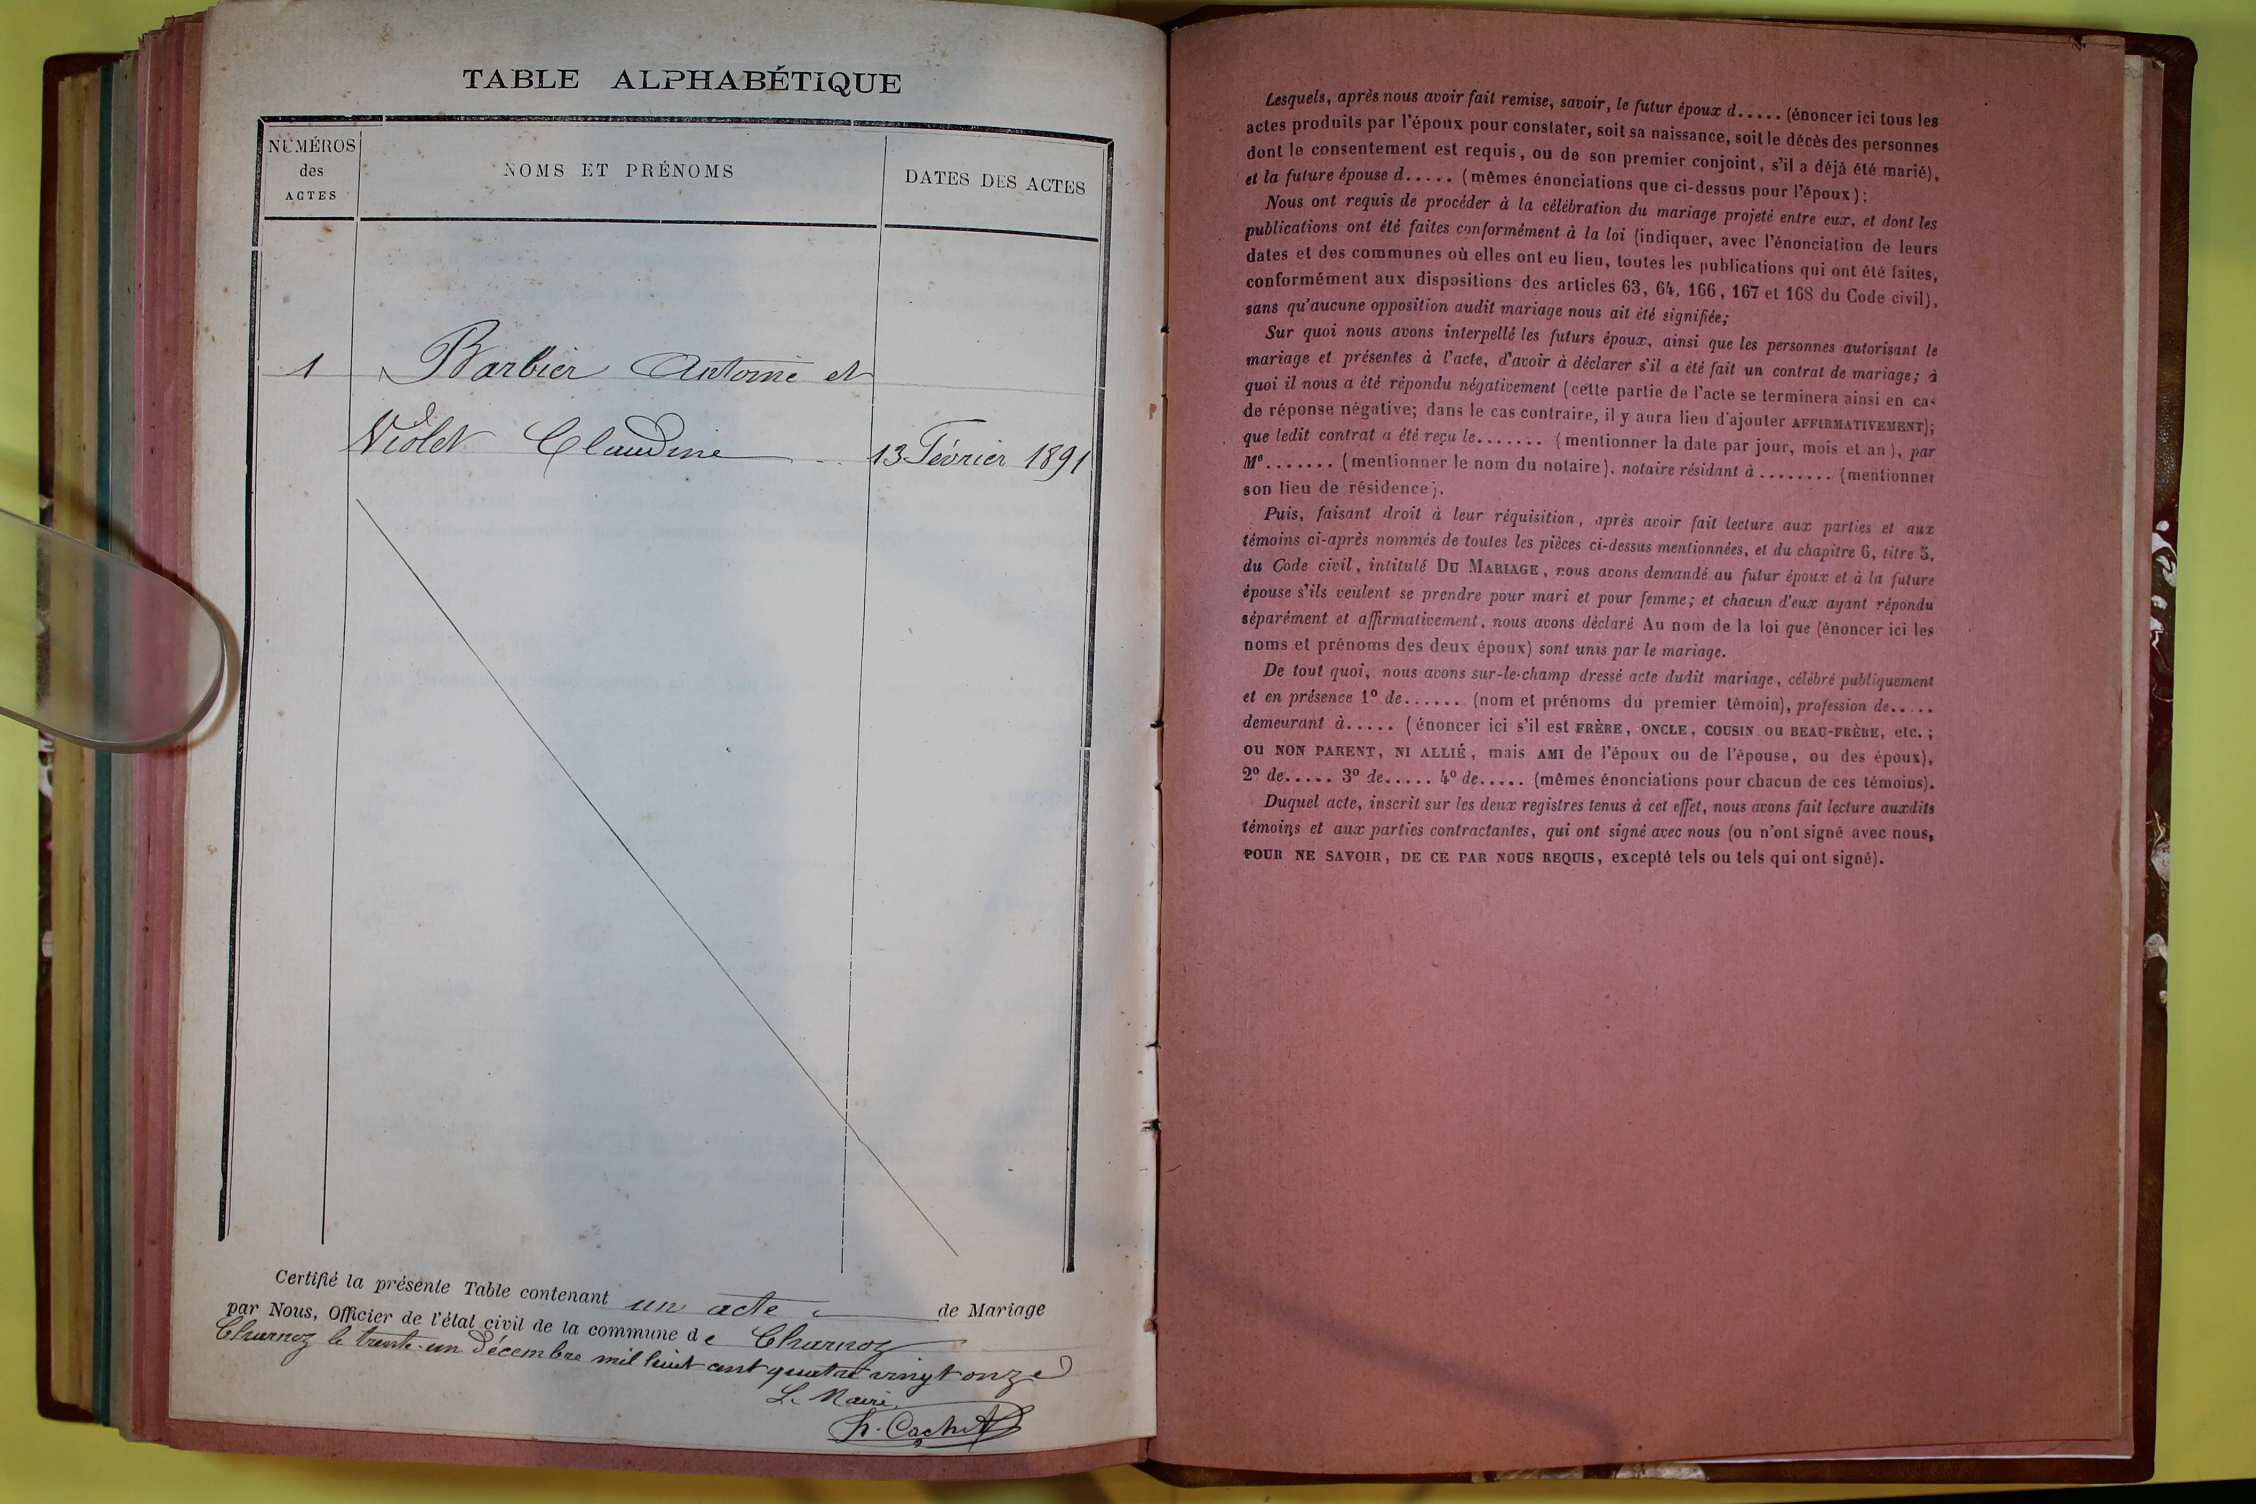 TABLE ALPHABÉTIQUE
NUMÉROS
des
ACTES
NOMS ET PRÉNOMS
DATES DES ACTES
1 Barbier Antoine et
Violet Claudine 13 Février 1891
Certifié la présente Table contenant un acte de Mariage
par Nous, Officier de l'état civil de la commune de Charnoz
Charnoz le trente-un Décembre mil huit cent quatre vingt onze
Le Maire,
Cachet
Lesquels, après nous avoir fait remise, savoir, le futur époux d..... (énoncer ici tous les
actes produits par l'époux pour constater, soit sa naissance, soit le décès des personnes
dont le consentement est requis, ou de son premier conjoint, s'il a déjà été marié),
et la future épouse d..... (mêmes énonciations que ci-dessus pour l'époux);
Nous ont requis de procéder à la célébration du mariage projeté entre eux, et dont les
publications ont été faites conformément à la loi (indiquer, avec l'énonciation de leurs
dates et des communes où elles ont eu lieu, toutes les publications qui ont été faites,
conformément aux dispositions des articles 63, 64, 166, 167 et 168 du Code civil),
sans qu'aucune opposition audit mariage nous ait été signifiée;
Sur quoi nous avons interpellé les futurs époux, ainsi que les personnes autorisant le
mariage et présentes à l'acte, d'avoir à déclarer s'il a été fait un contrat de mariage; à
quoi il nous a été répondu négativement (cette partie de l'acte se terminera ainsi en cas
de réponse négative; dans le cas contraire, il y aura lieu d'ajouter AFFIRMATIVEMENT);
que ledit contrat a été reçu le....... (mentionner la date par jour, mois et an), par
Me....... (mentionner le nom du notaire), notaire résidant à ........ (mentionner
son lieu de résidence).
Puis, faisant droit à leur réquisition, après avoir fait lecture aux parties et aux
témoins ci-après nommés de toutes les pièces ci-dessus mentionnées, et du chapitre 6, titre 5,
du Code civil, intitulé DU MARIAGE, nous avons demandé au futur époux et à la future
épouse s'ils veulent se prendre pour mari et pour femme; et chacun d'eux ayant répondu
séparément et affirmativement, nous avons déclaré Au nom de la loi que (énoncer ici les
noms et prénoms des deux époux) sont unis par le mariage.
De tout quoi, nous avons sur-le-champ dressé acte dudit mariage, célébré publiquement
et en présence 1º de...... (nom et prénoms du premier témoin), profession de.....
demeurant à..... (énoncer ici s'il est FRÈRE, ONCLE, COUSIN ou BEAU-FRÈRE, etc.;
ou NON PARENT, NI ALLIÉ, mais AMI de l'époux ou de l'épouse, ou des époux),
2º de..... 3º de..... 4º de..... (mêmes énonciations pour chacun de ces témoins).
Duquel acte, inscrit sur les deux registres tenus à cet effet, nous avons fait lecture auxdits
témoins et aux parties contractantes, qui ont signé avec nous (ou n'ont signé avec nous,
POUR NE SAVOIR, DE CE PAR NOUS REQUIS, excepté tels ou tels qui ont signé).